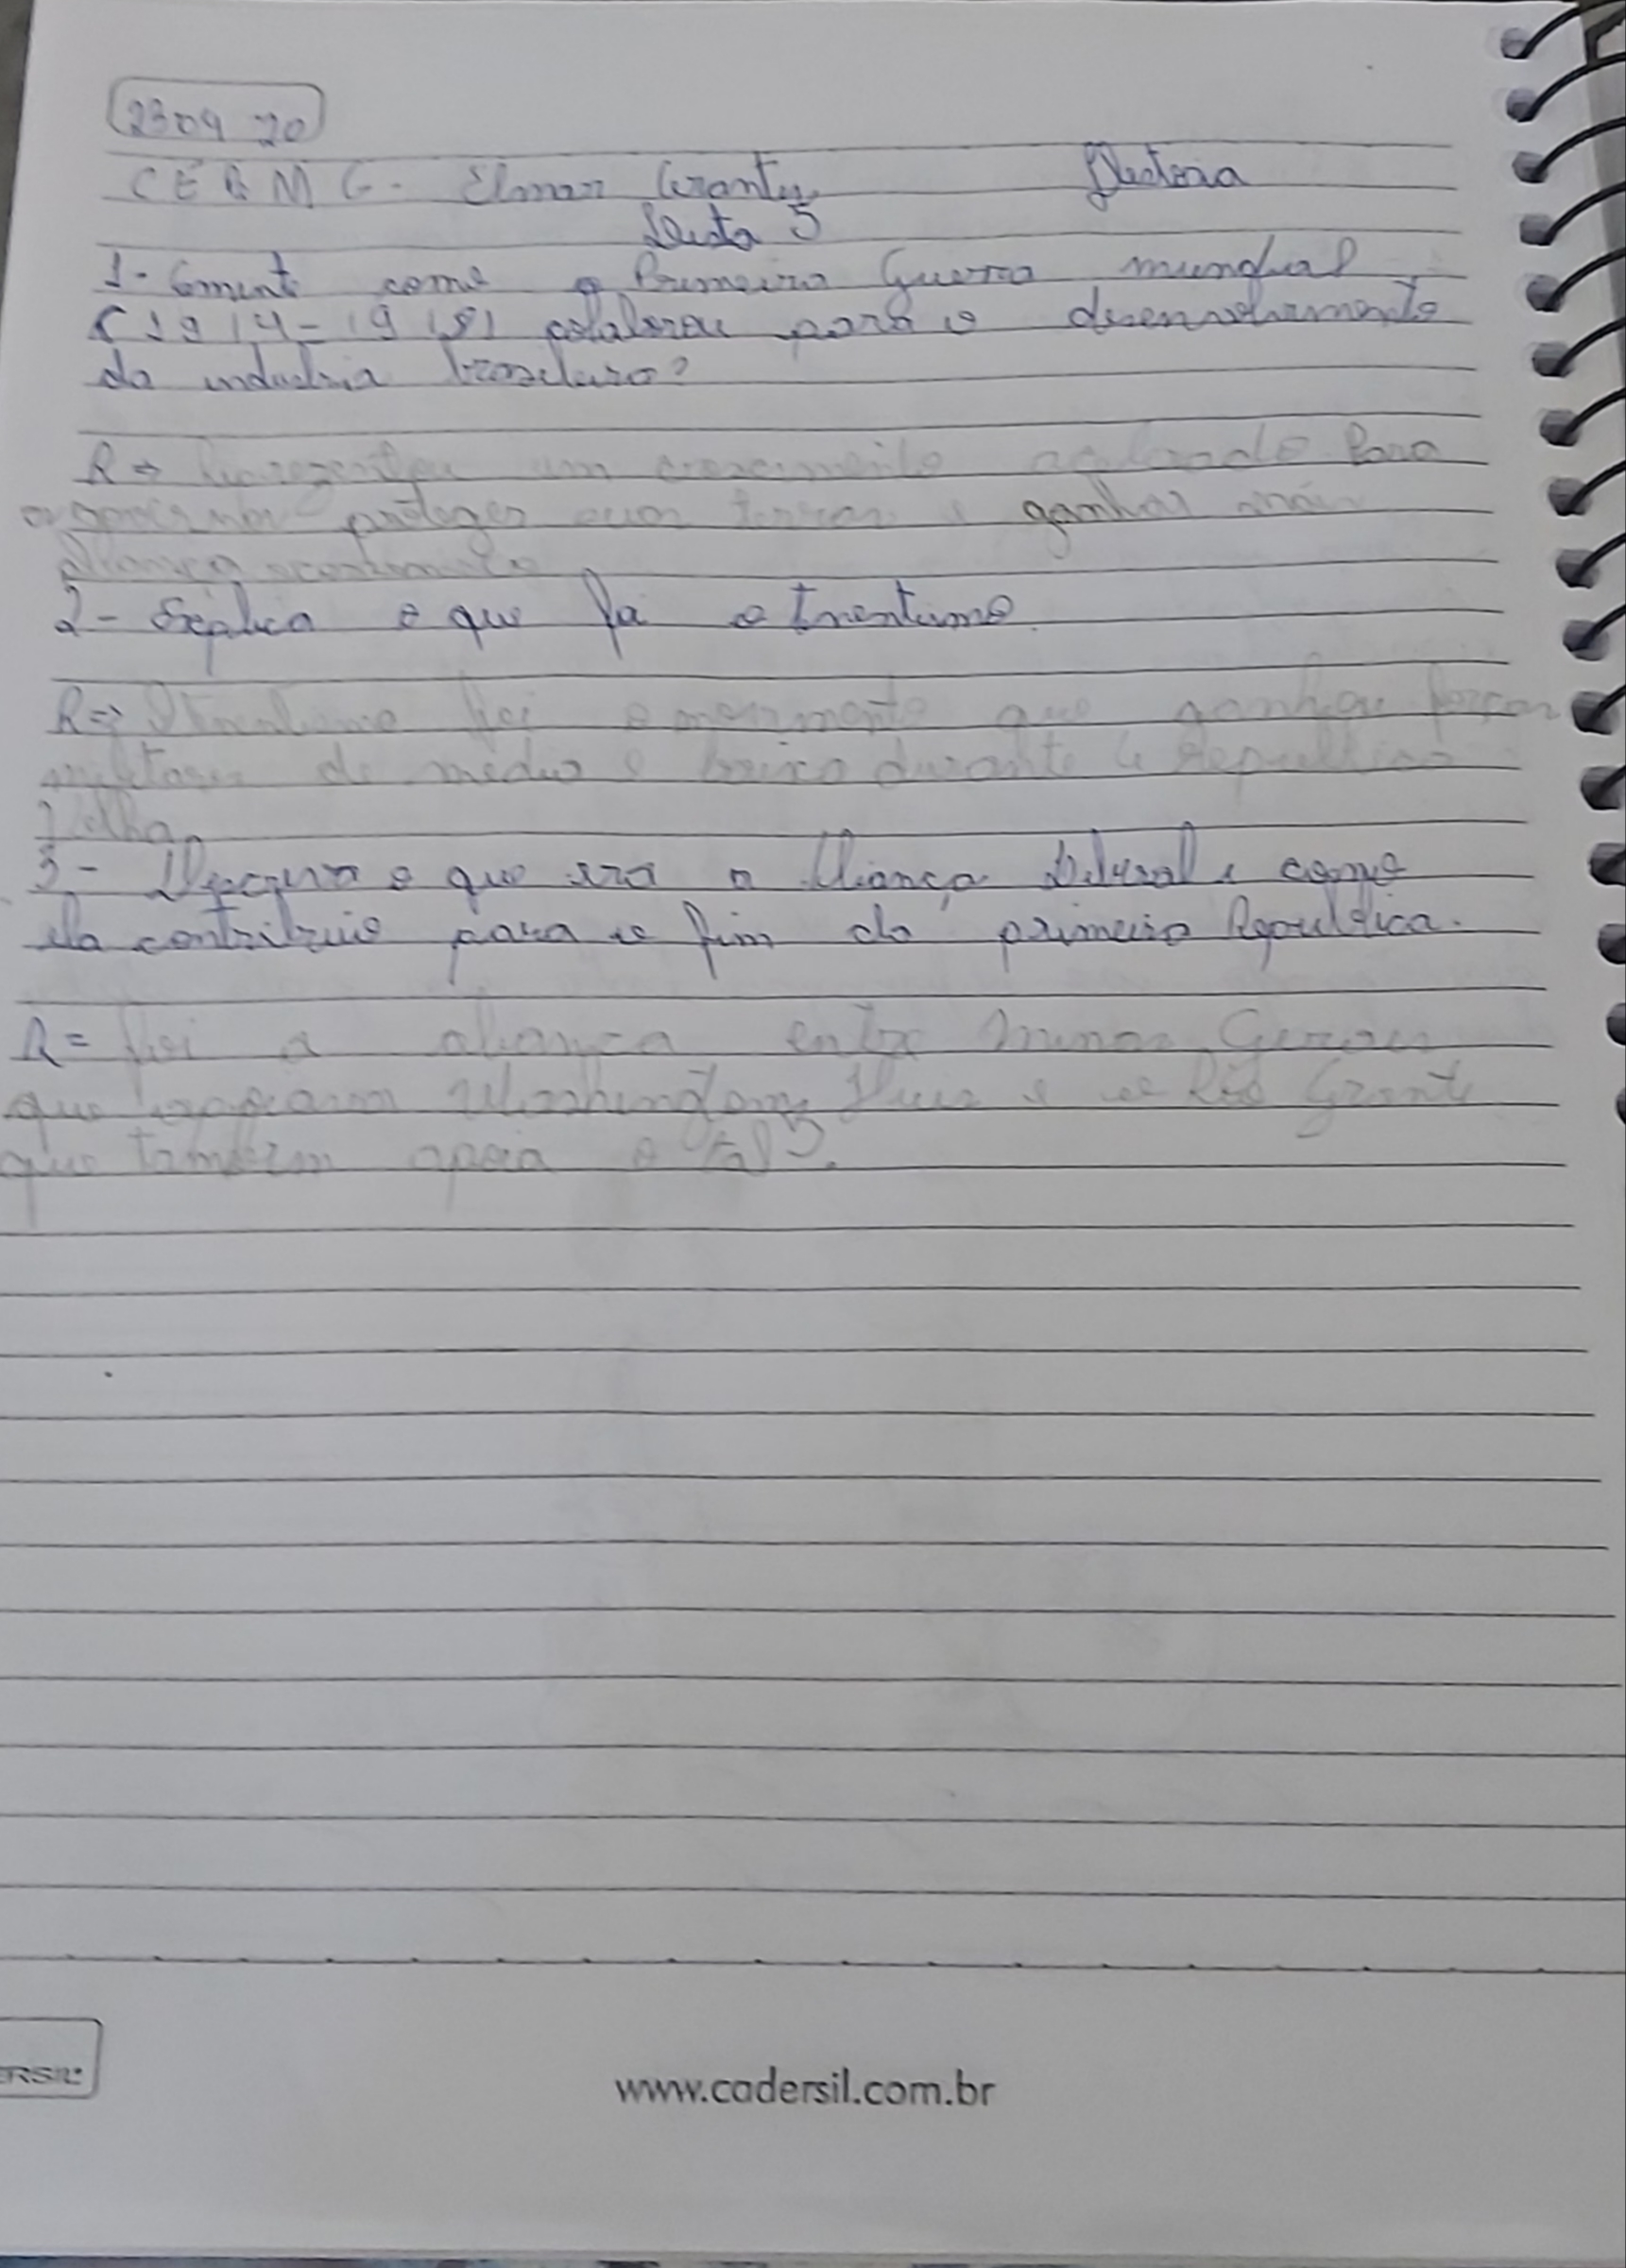 230920
CEBMG - Elmar
Lista 5
1- Coment como a Primeira Guerra mundial
(1914-1918) colaborou para o desenvolvimento
da industria brasileiro?
R⇒ um crescimento Para
proteger suas terras e ganhar mais
2- Explica o que foi o Tnentismo.
R⇒ foi o movimento que ganhou forças
militares de médio e baixo durante a Republica
Velha
3- o que era a Aliança Liberal e como
ela contribuio para o fim da primeira República.
R= foi a aliança entre Minas Gerais
que Washington Luis e o Rio Grante
que tambem apoia o
www.cadersil.com.br